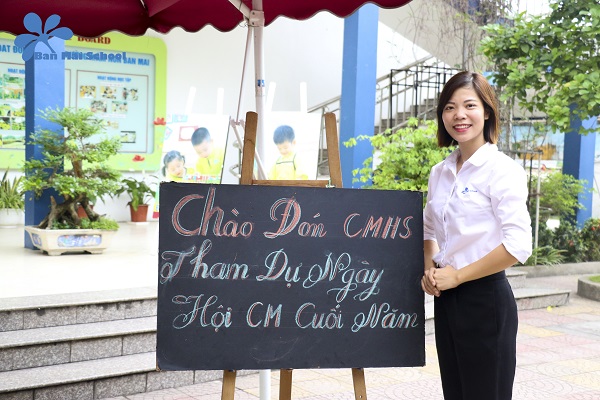 Ban Mai School
BOARD
BAN MAI
Chào Đón CMHS
Tham Dự Ngày
Hội CM Cuối Năm